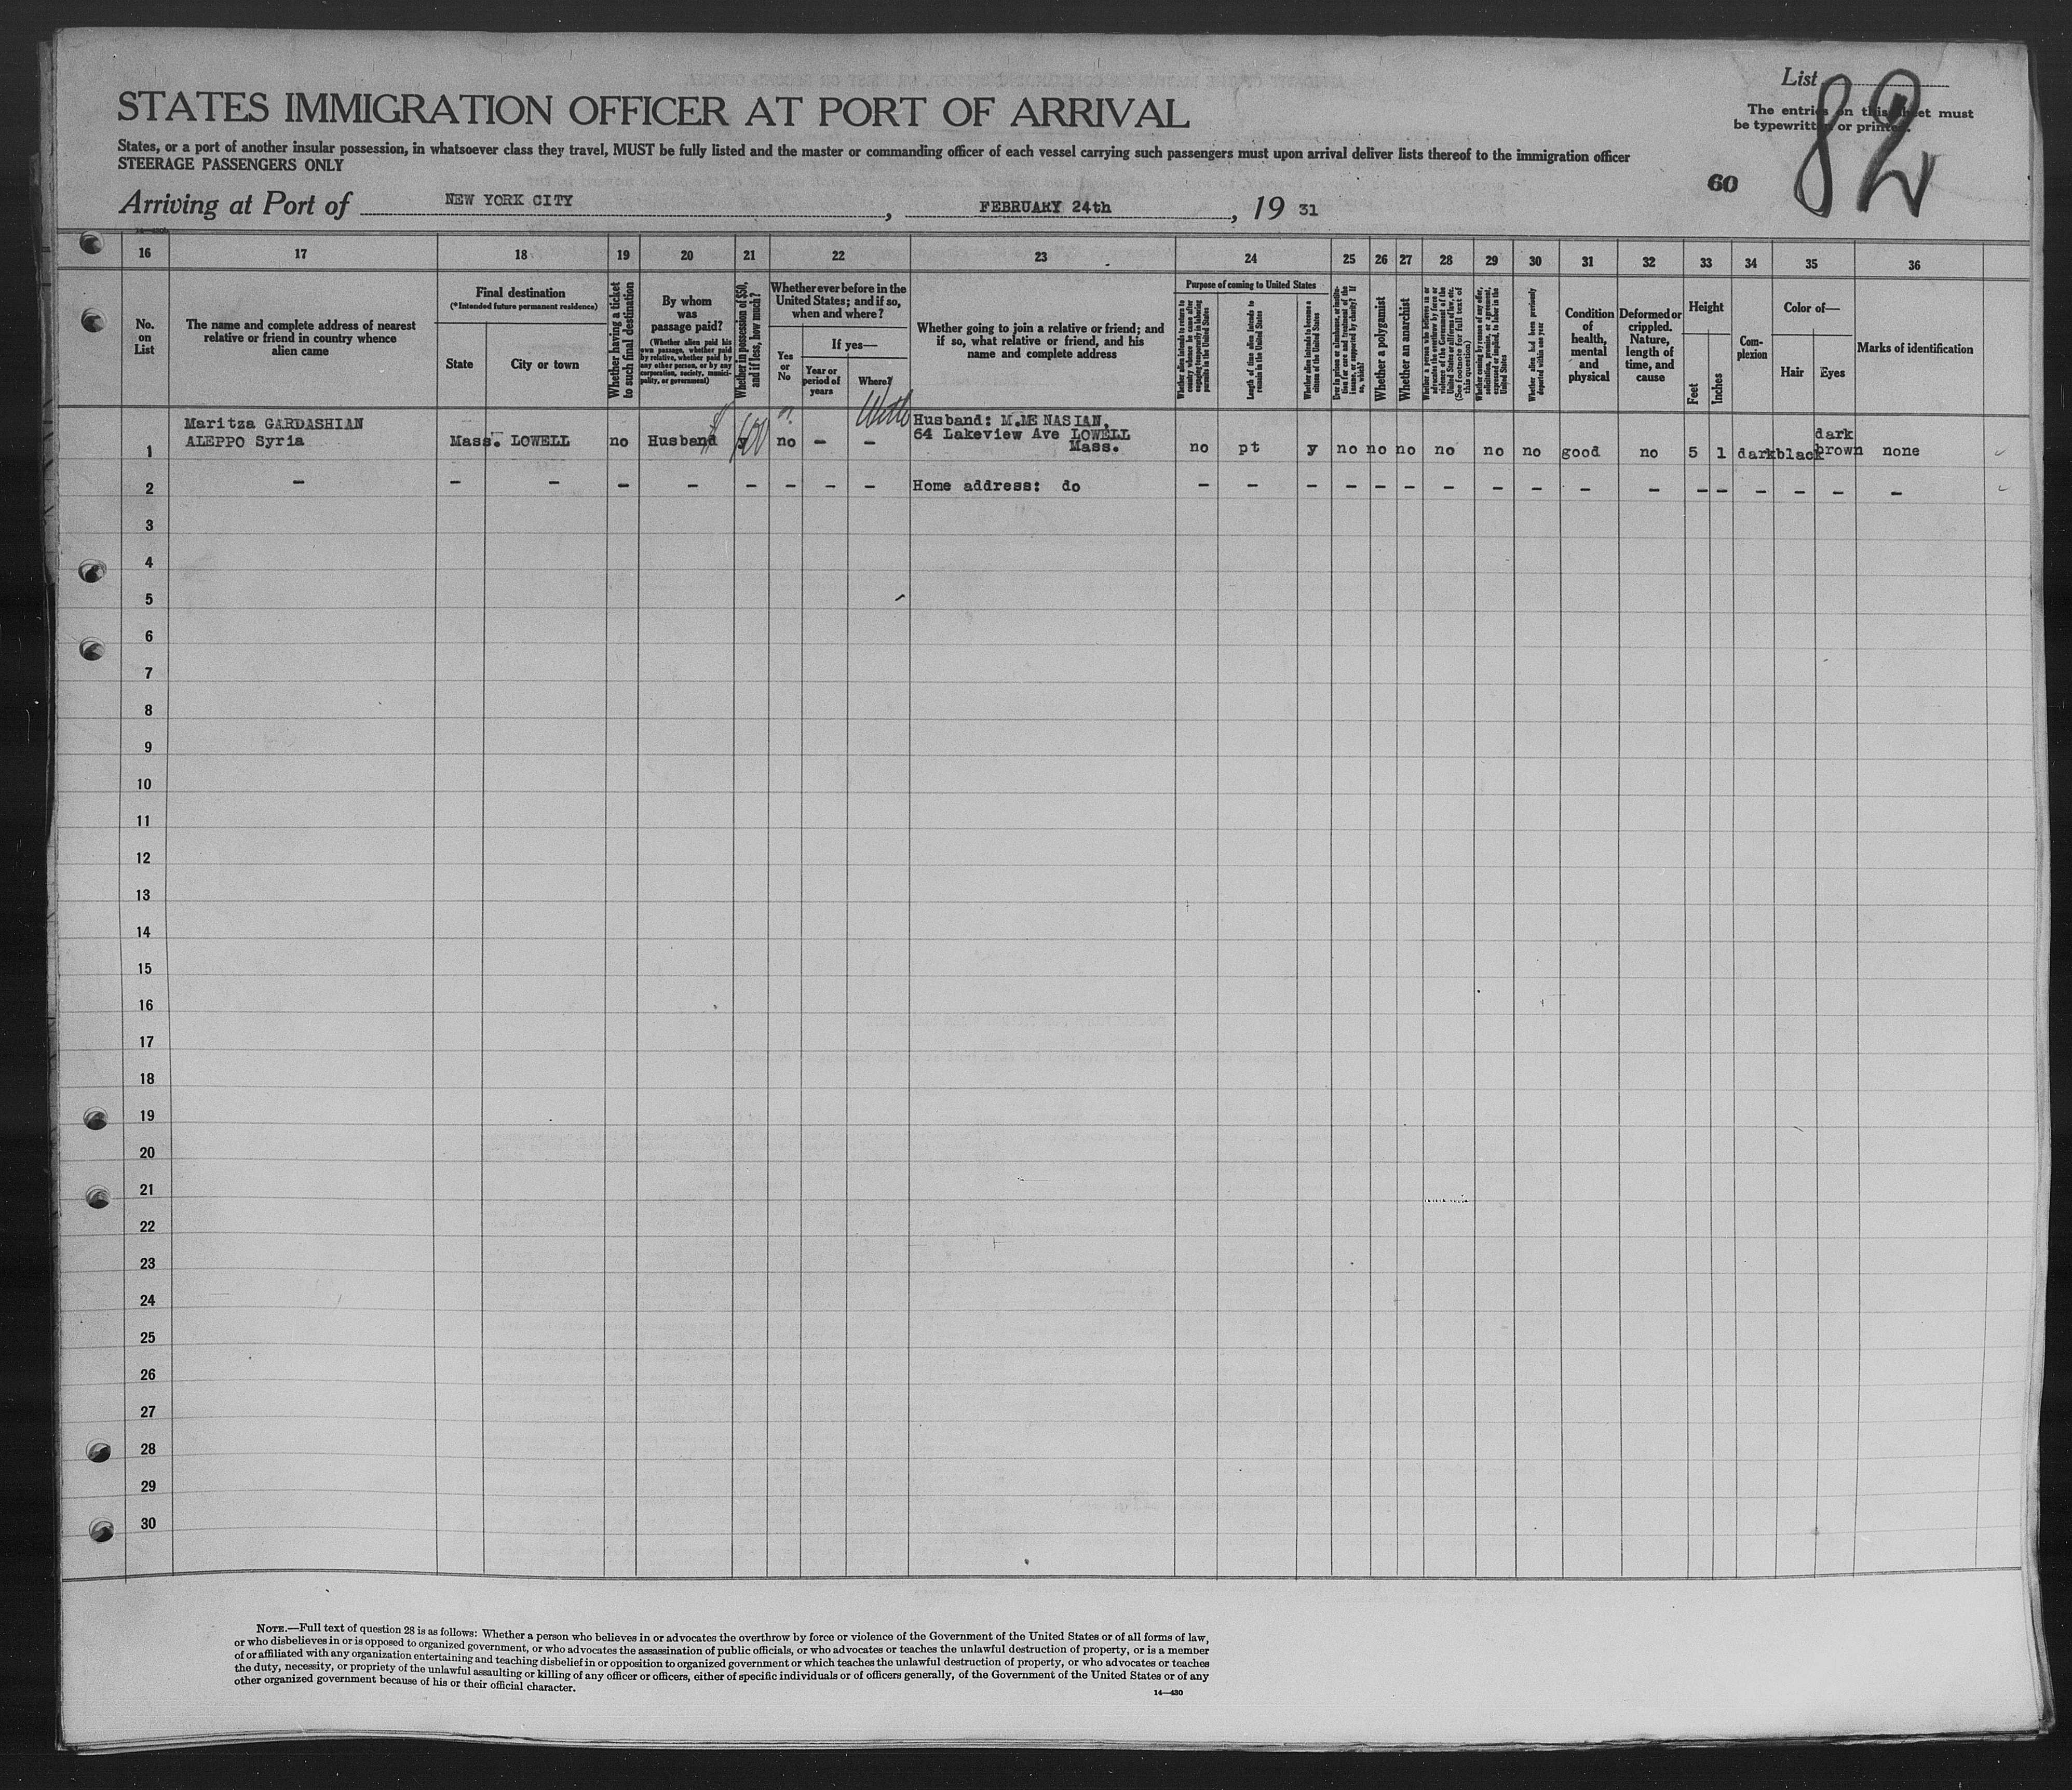 List
The entries on this sheet must
be typewritten or printed.
82
STATES IMMIGRATION OFFICER AT PORT OF ARRIVAL
States, or a port of another insular possession, in whatsoever class they travel, MUST be fully listed and the master or commanding officer of each vessel carrying such passengers must upon arrival deliver lists thereof to the immigration officer
STEERAGE PASSENGERS ONLY
60
Arriving at Port of NEW YORK CITY, FEBRUARY 24th, 19 31
16 17 18 19 20 21 22 23 24 25 26 27 28 29 30 31 32 33 34 35 36
No.
on
List
The name and complete address of nearest
relative or friend in country whence
alien came
Final destination
(*Intended future permanent residence)
State
City or town
Whether having a ticket
to such final destination
By whom
was
passage paid?
(Whether alien paid his
own passage, whether paid
by relative, whether paid by
any other person, or by any
corporation, society, munici-
pality, or government)
Whether in possession of $50,
and if less, how much?
Whether ever before in the
United States; and if so,
when and where?
Yes
or
No
If yes—
Year or
period of
years
Where?
Whether going to join a relative or friend; and
if so, what relative or friend, and his
name and complete address
Purpose of coming to United States
Whether alien intends to return to
country whence he came after
engaging temporarily in laboring
pursuits in the United States
Length of time alien intends to
remain in the United States
Whether alien intends to become a
citizen of the United States
Ever in prison or almshouse, or institu-
tion for care and treatment of the
insane, or supported by charity? If
so, which?
Whether a polygamist
Whether an anarchist
Whether a person who believes in or
advocates the overthrow by force or
violence of the Government of the
United States or all forms of law, etc.
(See footnote for full text of
this question)
Whether coming by reason of any offer,
solicitation, promise, or agreement,
expressed or implied, to labor in the
United States
Whether alien had been previously
deported within one year
Condition
of
health,
mental
and
physical
Deformed or
crippled.
Nature,
length of
time, and
cause
Height
Feet
Inches
Com-
plexion
Color of—
Hair
Eyes
Marks of identification
Maritza GARDASHIAN
ALEPPO Syria
1 Mass. LOWELL no Husband y no – –
Husband: M.ME NASIAN,
64 Lakeview Ave LOWELL
Mass.
no pt y no no no no no no good no 5 1 dark black
dark
brown
none
2 – – – – – – – – – Home address: do – – – – – – – – – – – – – – – – –
3
4
5
6
7
8
9
10
11
12
13
14
15
16
17
18
19
20
21
22
23
24
25
26
27
28
29
30
NOTE.—Full text of question 28 is as follows: Whether a person who believes in or advocates the overthrow by force or violence of the Government of the United States or of all forms of law,
or who disbelieves in or is opposed to organized government, or who advocates the assassination of public officials, or who advocates or teaches the unlawful destruction of property, or is a member
of or affiliated with any organization entertaining and teaching disbelief in or opposition to organized government or which teaches the unlawful destruction of property, or who advocates or teaches
the duty, necessity, or propriety of the unlawful assaulting or killing of any officer or officers, either of specific individuals or of officers generally, of the Government of the United States or of any
other organized government because of his or their official character.
14—430